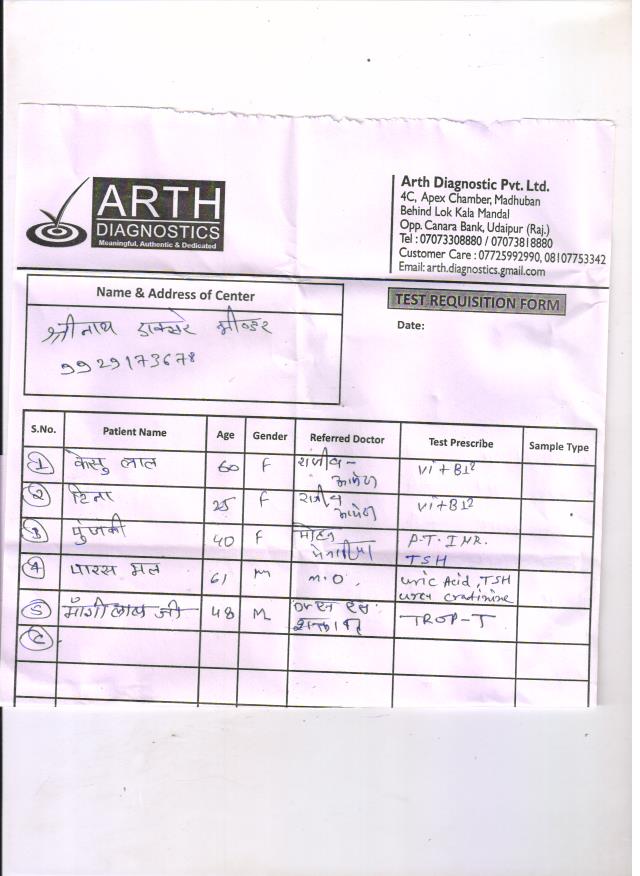 ARTH
DIAGNOSTICS
Meaningful, Authentic & Dedicated
Arth Diagnostic Pvt. Ltd.
4C, Apex Chamber, Madhuban
Behind Lok Kala Mandal
Opp. Canara Bank, Udaipur (Raj.)
Tel : 07073308880 / 07073818880
Customer Care : 07725992990, 08107753342
Email: arth.diagnostics.gmail.com
Name & Address of Center
श्रीनाथ
9929173678
TEST REQUISITION FORM
Date:
S.No. Patient Name Age Gender Referred Doctor Test Prescribe Sample Type
1 केसु लाल 60 F Vit B12
2 हिना 25 F Vit B12
3 40 F मोहन P.T. INR.
TSH
4 पारस मल 61 M M.O. Uric Acid, TSH
Urea Cratinine
5 माँगीलाल जी 48 M TROP-T
6